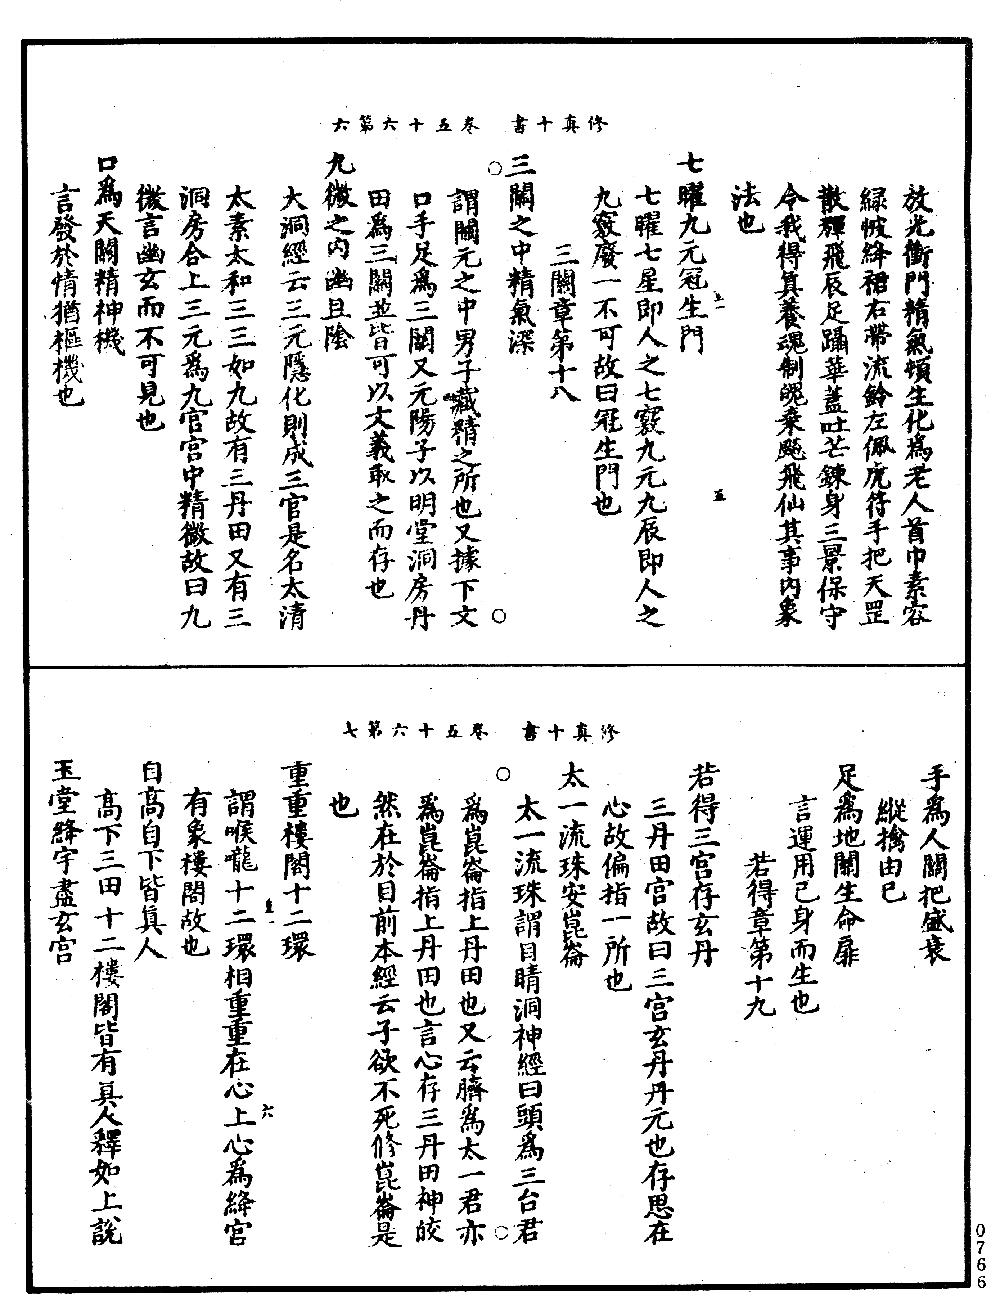 修真十書　卷五十六第六
放光衝門精氣頓生化為老人首巾素容
綠帔絳裙右帶流鈴左佩虎符手把天罡
散輝飛辰足躡華蓋吐芒鍊身三景保守
令我得真養魂制魄乘飈飛仙其事內象
法也
七曜九元冠生門
七曜七星即人之七竅九元九辰即人之
九竅廢一不可故曰冠生門也
三關章第十八
三關之中精氣深
謂關元之中男子藏精之所也又據下文
口手足為三關又元陽子以明堂洞房丹
田為三關並皆可以文義取之而存也
九微之內幽且陰
大洞經云三元隱化則成三官是名太清
太素太和三三如九故有三丹田又有三
洞房合上三元為九宮宮中精微故曰九
微言幽玄而不可見也
口為天關精神機
言發於情猶樞機也
五
修真十書　卷五十六第七
手為人關把盛衰
縱擒由己
足為地關生命扉
言運用己身而生也
若得章第十九
若得三宮存玄丹
三丹田宮故曰三宮玄丹丹元也存思在
心故偏指一所也
太一流珠安崑崙
太一流珠謂目睛洞神經曰頭為三台君
為崑崙指上丹田也又云臍為太一君亦
為崑崙指上丹田也言心存三丹田神皎
然在於目前本經云子欲不死修崑崙是
也
重重樓閣十二環
謂喉嚨十二環相重重在心上心為絳宮
有象樓閣故也
自高自下皆真人
高下三田十二樓閣皆有真人釋如上說
玉堂絳宇盡玄宮
六
0766